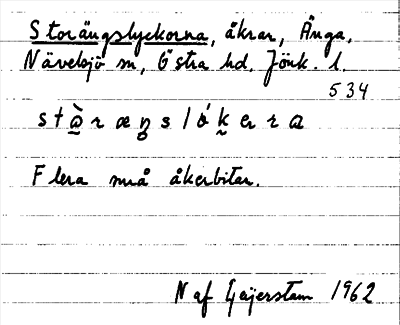 Storängslyckorna, åkrar, Ånga,
Nävelsjö sn, Östra hd, Jönk. l.
534
Flera små åkerbitar.
N af Gejerstam 1962